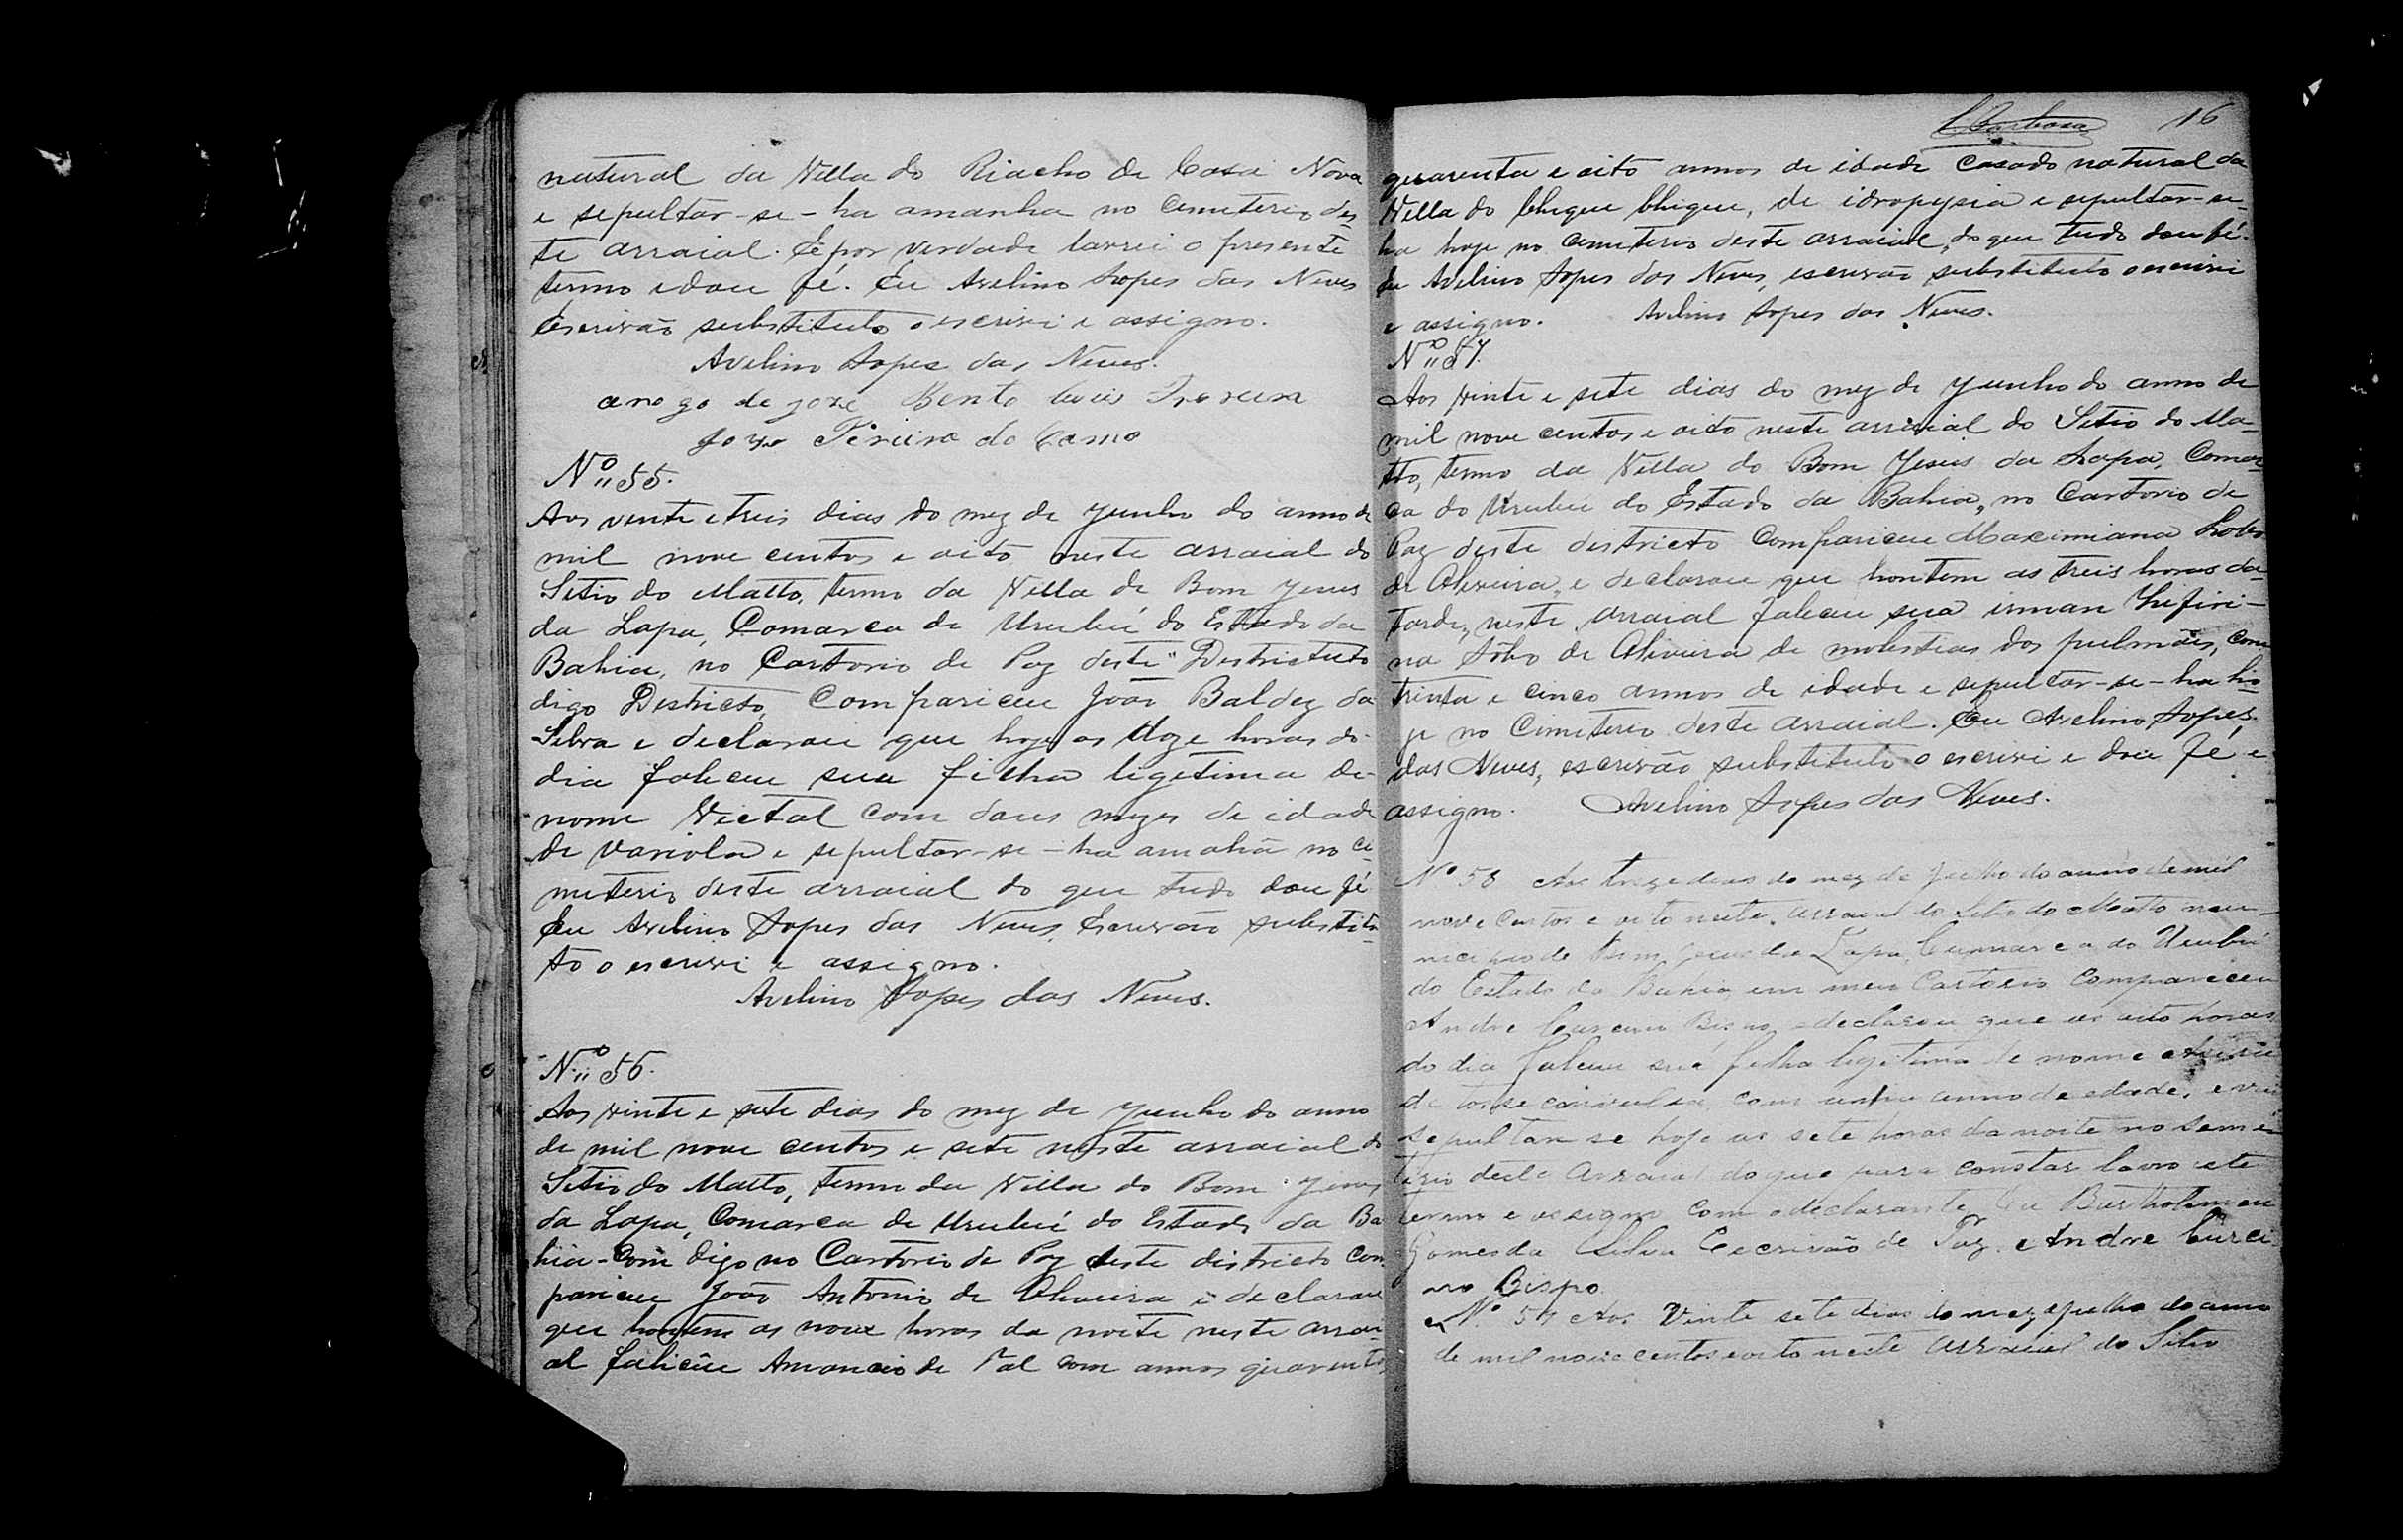 natural da Villa do Riacho de Casa Nova
e sepultar-se-ha amanha no cemeterio des
te arraial. E por verdade lavrei o presente
termo e dou fé. Eu Avelino Lopes das Neves
Escrivão substituto o escrivi e assigno.
Avelino Lopes das Neves.
arogo de joze Bento
Pereira do Carmo
Nº 55.
Aos vente e treis dias do mez de Junho do anno de
mil nove centos e oito neste arraial do
Sitio do Matto, termo da Villa de Bom Jesus
da Lapa, Comarca de Urubú do Estado da
Bahia, no Cartorio de Paz deste Districtuto
digo Districto, Compariceu João Baldez da
Silva e declarou que hoje as doze horas do
dia faleceu sua filha ligitima de
nome Victal com dous mezes de idade
de variola e sepultar-se-ha amahã no ce
meterio deste arraial do que tudo dou fé
Eu Avelino Lopes das Neves, Escrivão substitu
to o escrivi e assigno.
Avelino Lopes das Neves.
Nº 56.
Aos vinte e sete dias do mez de Junho do anno
de mil nove centos e sete neste arraial do
Sitio do Matto, termo da Villa do Bom Jesus
da Lapa, Comarca de Urubú do Estado da Ba
hia-Com digo no Cartorio de Paz deste districto Com
pariceu João Antonio de Oliveira e declarou
que hontem as nove horas da noite neste arrai
al faliceu Amancio de Tal com annos quarenta
C Barbosa 16
quarenta e oito annos de idade casado natural da
Villa do Chique Chique, de idropysia e sepultar-se-
ha hoje no cemeterio deste arraial, do que tudo dou fé.
Eu Avelino Lopes das Neves, escrivão substituto o escrivi
e assigno. Avelino Lopes das Neves.
Nº 57.
Aos vinte e sete dias do mez de Junho do anno de
mil nove centos e oito neste arraial do Sitio do Ma-
tto, termo da Villa do Bom Jesus da Lapa, Comar
ca do Urubú do Estado da Bahia, no Cartorio de
Paz deste districto Compariceu Maximiana Lobo
de Oliveira, e declarou que hontem as treis horas da
tarde, neste arraial faleceu sua irman Zifiri-
na Lobo de Oliveira de molestias dos pulmões, com
trinta e cinco annos de idade e sepultar-se-ha ho
je no Cimiterio deste arraial. Eu Avelino Lopes
das Neves, escrivão substituto o escrivi e dou fé e
assigno. Avelino Lopes das Neves.
Nº 58 Aos treze dias do mez de Julho do anno de mil
nove centos e oito neste arraial do Sitio do Matto mu-
nicipio de Bom Jesus da Lapa, Comarca do Urubú
do Estado da Bahia em meu Cartorio Compareceu
Andre Curcino Bispo e declarou que as oito horas
do dia faleceu sua filha legitima de nome
de tosse convulsa, com um anno de edade, e vai
sepultar se hoje as sete horas da noite no semi
terio deste Arraial do que para constar lavro este
termo e assigno com o declarante Eu Bartholomeu
Gomes da Silva Escrivão de Paz. Andre Curci
no Bispo
Nº 59 Aos Vinte sete dias do mez Julho do anno
de mil nove centos e oito neste arraial do Sitio